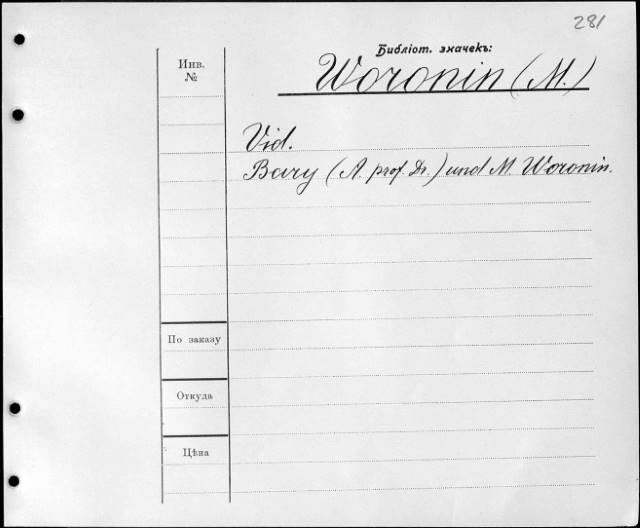 281
Библіот. значекъ:
Инв.
№
Woronin (M.)
Vid.
Bary (A. prof. Dr.) und M. Woronin.
По заказу
Откуда
Цѣна